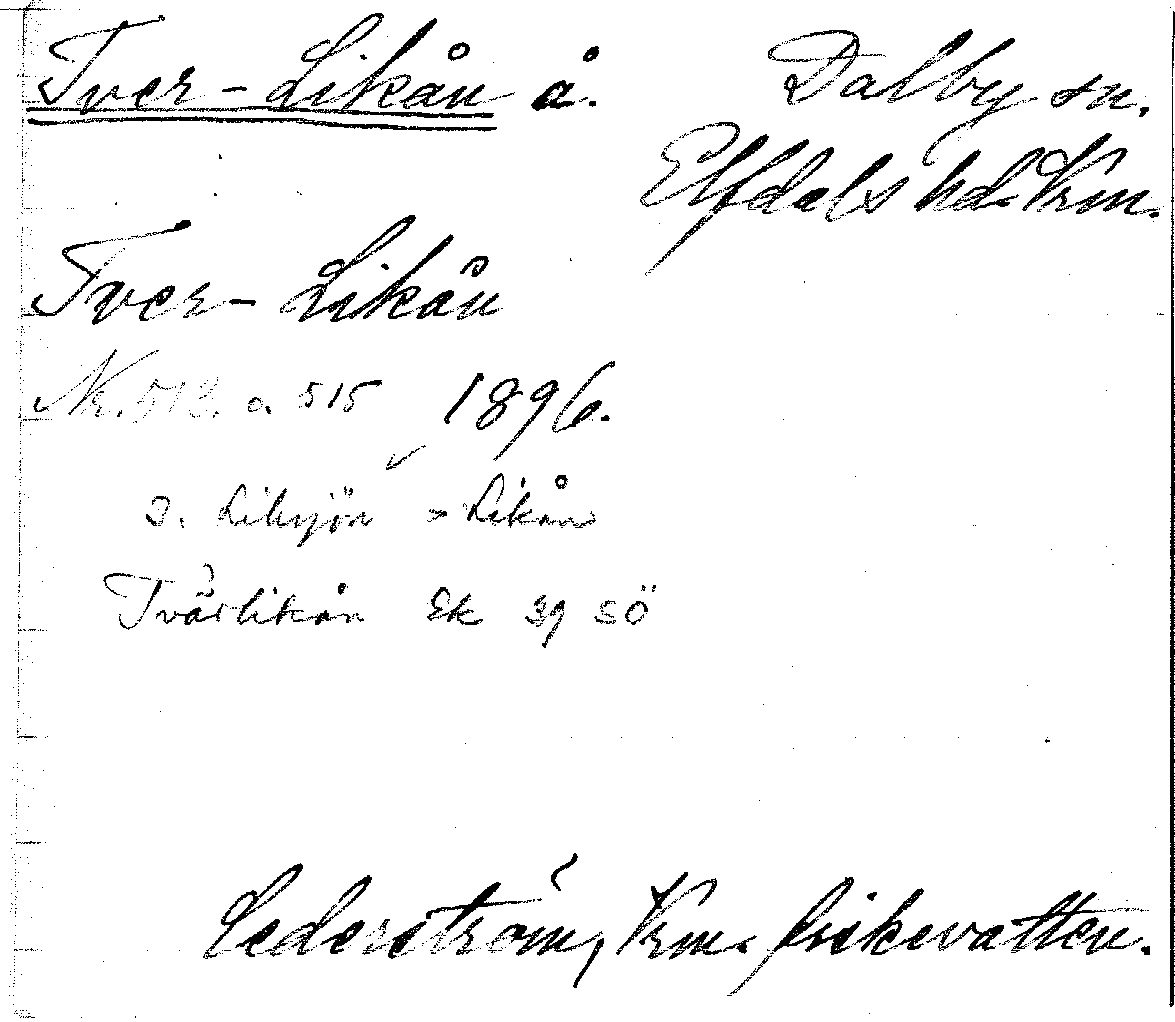 Tver-Likån å. Dalby sn.
Elfdals hd. Vrm.
Tver-Likån
Nr. 512. o. 515 1896.
s. Liksjön Likån
Tvärlikån Ek 39 SÖ
Cederström, Vrm. fiskevatten.